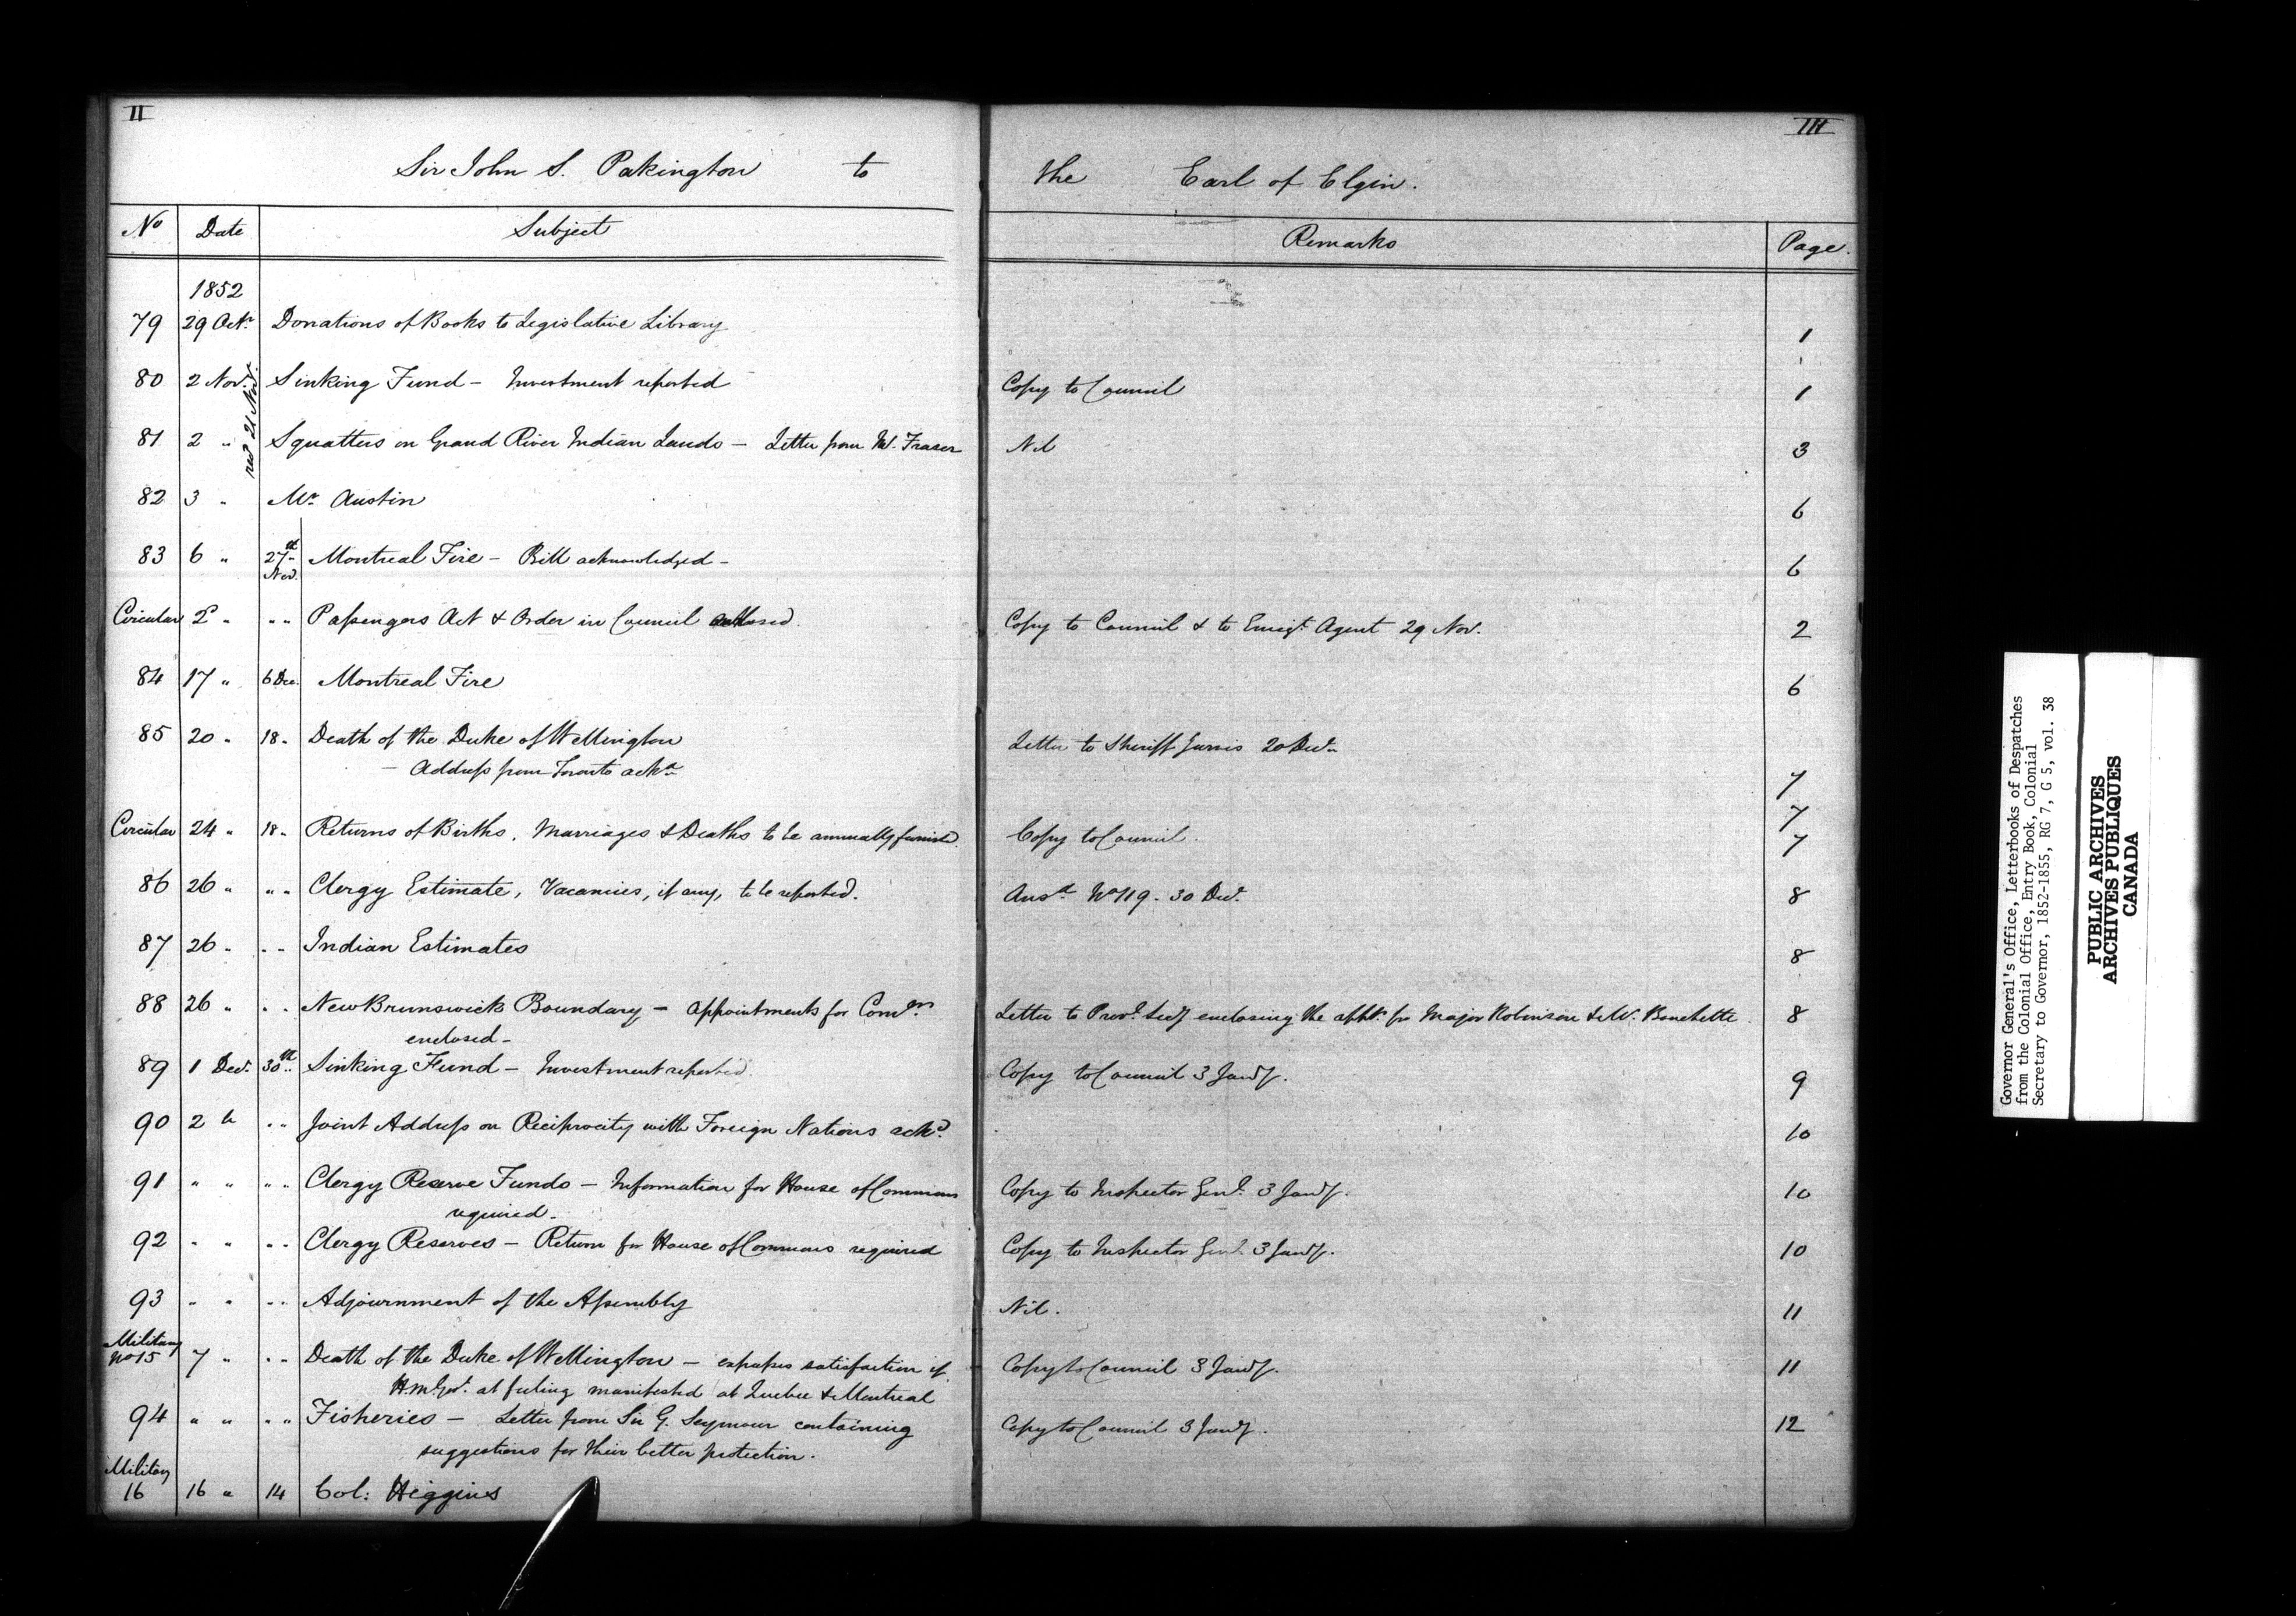 II
III
Sir John S. Pakington to the Earl of Elgin.
No Date Subject Remarks Page.
1852
79 29 Octr. Donations of Books to Legislative Library 1
80 2 Novr. Sinking Fund - Investment reported Copy to Council 1
recd 21 Novr.
81 2 " Squatters on Grand River Indian Lands - Letter from W. Fraser Nil 3
82 3 " Mr. Austin 6
83 6 " 27th Nov. Montreal Fire - Bill acknowledged - 6
Circular 2d " " " Passengers Act & Order in Council Copy to Council & to Emigt. Agent 29 Nov. 2
84 17 " 6 Dec. Montreal Fire 6
85 20 " 18 " Death of the Duke of Wellington Letter to Sheriff Jarvis 20 Decr.
- Address from Toronto ackd. 7
7
Circular 24 " 18 " Returns of Births, Marriages & Deaths to be annually furnishd. Copy to Council. 7
86 26 " " " Clergy Estimate, Vacancies, if any, to be reported. Ansd. No 119 - 30 Decr. 8
87 26 " " " Indian Estimates 8
88 26 " " " New Brunswick Boundary - Appointments for Comrs. Letter to Provl. Secy enclosing the appts. for Major Robinson & Mr. Bouchette. 8
enclosed -
89 1 Decr. 30th " Sinking Fund - Investment reported. Copy to Council 3 Jany. 9
90 2 " " " Joint Address on Reciprocity with Foreign Nations ackd. 10
91 " " " " Clergy Reserve Funds - Information for House of Commons Copy to Inspector Genl. 3 Jany. 10
required -
92 " " " " Clergy Reserves - Return for House of Commons required Copy to Inspector Genl. 3 Jany. 10
93 " " " " Adjournment of the Assembly Nil. 11
Military
No 15 7 " " " Death of the Duke of Wellington - expresses satisfaction of Copy to Council 3 Jany. 11
H.M. Govt. at feeling manifested at Quebec & Montreal
94 " " " " Fisheries - Letter from Sir G. Seymour containing Copy to Council 3 Jany. 12
suggestions for their better protection.
Military
16 16 " 14 Col: Higgins
Governor General's Office, Letterbooks of Despatches
from the Colonial Office, Entry Book, Colonial
Secretary to Governor, 1852-1855, RG 7, G 5, vol. 38
PUBLIC ARCHIVES
ARCHIVES PUBLIQUES
CANADA